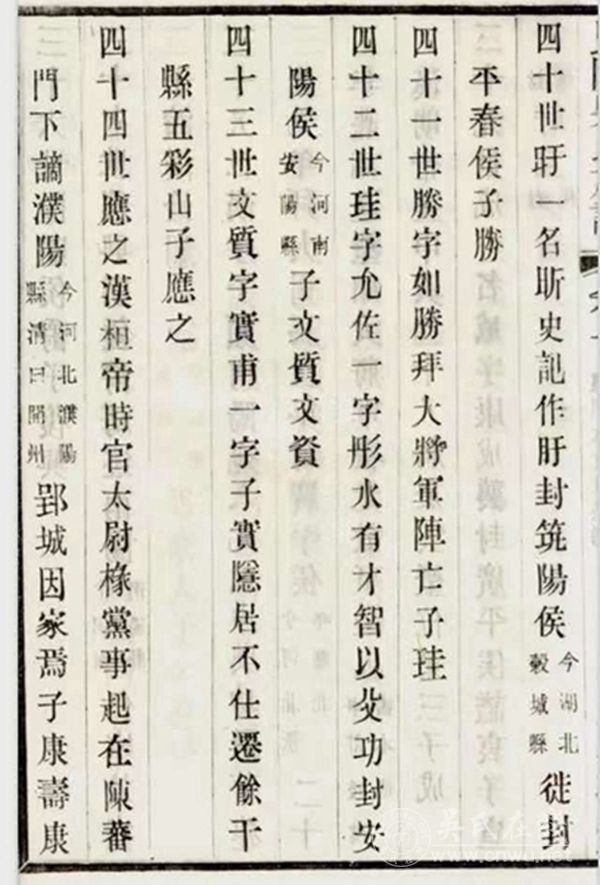 四十世盱一名斯史記作肝封筑陽侯今湖北穀城縣徙封
平春侯子勝
四十一世勝字如勝拜大將軍陣亡子珪
四十二世珪字允佐一字彤水有才智以父功封安
陽侯今河南安陽縣子文質文資
四十三世文質字實甫一字子實隱居不仕遷餘干
縣五彩山子應之
四十四世應之漢桓帝時官太尉椽黨事起在陳蕃
門下謫濮陽今河北濮陽縣清曰開州郢城因家焉子康壽康